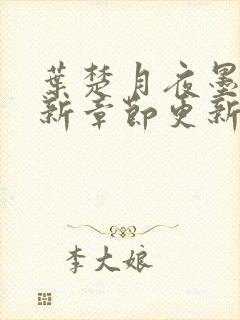 葉楚月夜墨
新章節更新
李大娘